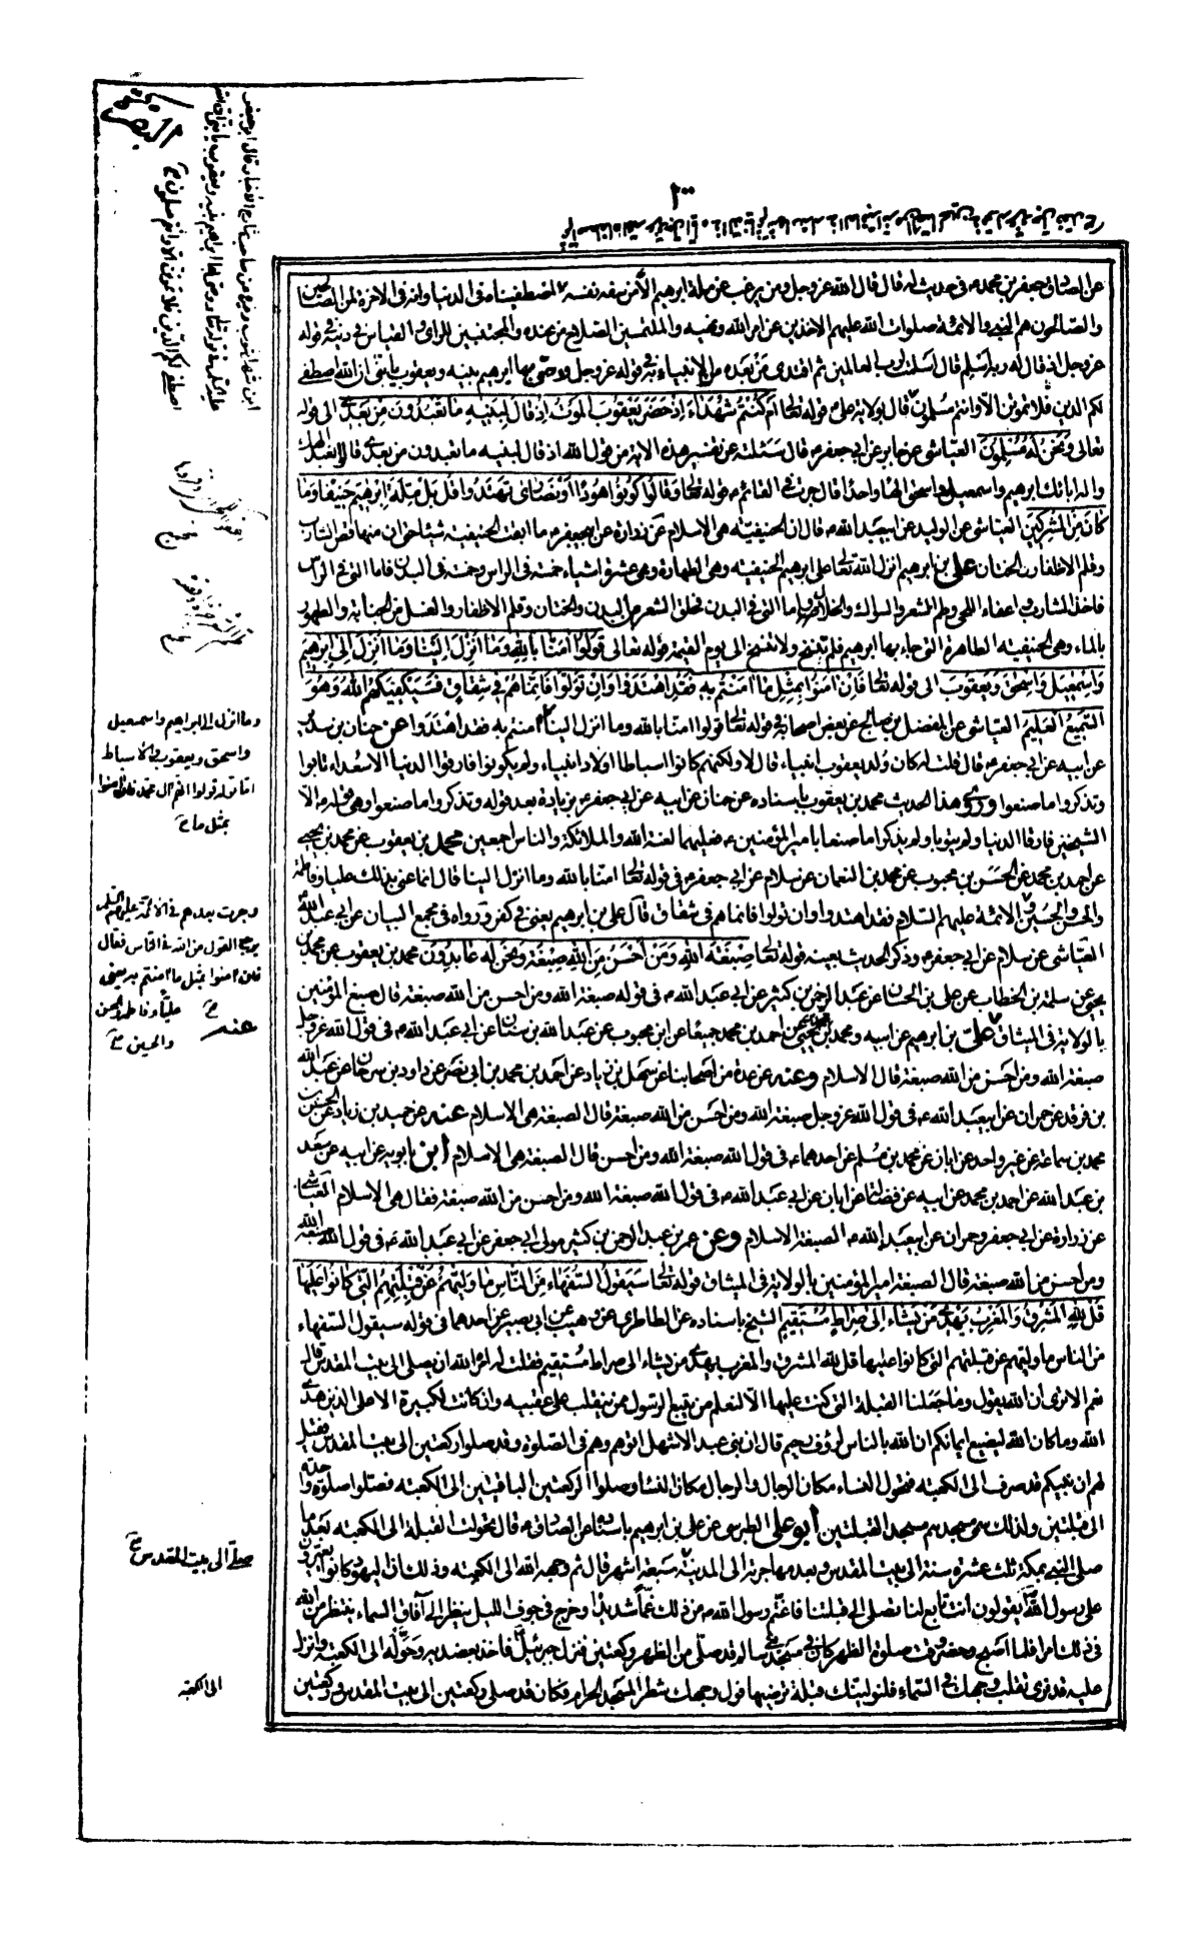 ١٠٠
عن الصادق جعفر بن محمد ع فى حديث له قال قال الله عز وجل ومن يرغب عن ملة ابرهيم الا من سفه نفسه ولقد اصطفيناه فى الدنيا وانه فى الاخرة لمن الصالحين
والصالحون هم النبى والائمة صلوات الله عليهم الاخذين عن امر الله ونهيه والملتمسين الصلاح من عنده والمجتنبين للراى والقياس فى دينه فى قوله
عز وجل اذ قال له ربه اسلم قال اسلمت لرب العالمين ثم اقتدى من بعده من الانبياء فى قوله عز وجل ووصى بها ابرهيم بنيه ويعقوب يا بنى ان الله اصطفى
لكم الدين فلا تموتن الا وانتم مسلمون قال بولاية على ع قوله تعالى ام كنتم شهداء اذ حضر يعقوب الموت اذ قال لبنيه ما تعبدون من بعدى الى قوله
تعالى ونحن له مسلمون العياشى عن جابر عن ابى جعفر ع قال سئلته عن تفسير هذه الاية من قول الله اذ قال لبنيه ما تعبدون من بعدى قالوا نعبد الهك
واله ابائك ابرهيم واسمعيل واسحق الها واحدا قال جرت فى القائم ع قوله تعالى وقالوا كونوا هودا او نصارى تهتدوا قل بل ملة ابرهيم حنيفا وما
كان من المشركين العياشى عن الوليد عن ابيعبد الله ع قال ان الحنيفية هى الاسلام عن زرارة عن ابيجعفر ع ما ابقت الحنيفية شيئا حتى ان منها قص الشارب
وقلم الاظفار والختان على بن ابرهيم انزل الله تعالى على ابرهيم الحنيفية وهى الطهارة وهى عشرة اشياء خمسة فى الراس وخمسة فى البدن فاما التى فى الراس
فاخذ الشارب واعفاء اللحى وطم الشعر والسواك والخلال واما التى فى البدن فحلق الشعر من البدن والختان وقلم الاظفار والغسل من الجنابة والطهور
بالماء وهى الحنيفية الطاهرة التى جاء بها ابرهيم فلم تنسخ ولا تنسخ الى يوم القيمة قوله تعالى قولوا امنا بالله وما انزل الينا وما انزل الى ابرهيم
واسمعيل واسحق ويعقوب الى قوله تعالى فان امنوا بمثل ما امنتم به فقد اهتدوا وان تولوا فانما هم فى شقاق فسيكفيكهم الله وهو
السميع العليم العياشى عن المفضل بن صالح عن بعض اصحابه فى قوله تعالى قولوا امنا بالله وما انزل الينا امنتم به فقد اهتدوا عن حنان بن سدير
عن ابيه عن ابى جعفر ع قال قلت له كان ولد يعقوب انبياء قال لا ولكنهم كانوا اسباطا اولاد انبياء ولم يكونوا فارقوا الدنيا الا سعداء تابوا
وتذكروا ما صنعوا وروى هذا الحديث محمد بن يعقوب باسناده عن حنان عن ابيه عن ابى جعفر ع بزيادة بعد قوله وتذكروا ما صنعوا وهى قوله الا
الشيخين فارقا الدنيا ولم يتوبا ولم يذكرا ما صنعا بامير المؤمنين ع فعليهما لعنة الله والملائكة والناس اجمعين محمد بن يعقوب عن محمد بن يحيى
عن احمد بن محمد عن الحسن بن محبوب عن محمد بن النعمان عن سلام عن ابى جعفر ع فى قوله تعالى امنا بالله وما انزل الينا قال انما عنى بذلك عليا وفاطمة
والحسن والحسين الائمة عليهم السلام فقد اهتدوا وان تولوا فانما هم فى شقاق قال على بن ابرهيم يعنى فى كفر ورواه فى مجمع البيان عن ابى عبد الله
العياشى عن سلام عن ابى جعفر ع وذكر الحديث بعينه قوله تعالى صبغة الله ومن احسن من الله صبغة ونحن له عابدون محمد بن يعقوب عن محمد بن
يحيى عن سلمة بن الخطاب عن على بن الحسان عن عبد الرحمن بن كثير عن ابى عبد الله ع فى قوله صبغة الله ومن احسن من الله صبغة قال صبغ المؤمنين
بالولاية فى الميثاق على بن ابرهيم عن ابيه ومحمد بن يحيى عن احمد بن محمد جميعا عن ابن محبوب عن عبد الله بن سنان عن ابى عبد الله ع فى قول الله عز وجل
صبغة الله ومن احسن من الله صبغة قال الاسلام وعنه عن عدة من اصحابنا عن سهل بن زياد عن احمد بن محمد بن ابى نصر عن داود بن سرحان عن عبد الله
بن فرقد عن حمران عن ابيعبد الله ع فى قول الله عز وجل صبغة الله ومن احسن من الله صبغة قال الصبغة هى الاسلام عنه عن حميد بن زياد عن الحسن بن
محمد بن سماعة عن غير واحد عن ابان عن محمد بن مسلم عن احدهما ع فى قول الله صبغة الله ومن احسن قال الصبغة هى الاسلام ابن بابويه عن ابيه عن سعد
بن عبد الله عن احمد بن محمد عن ابيه عن فضالة عن ابان عن ابى عبد الله ع فى قول الله صبغة الله ومن احسن من الله صبغة فقال هى الاسلام العياشى
عن زرارة عن ابى جعفر وحمران عن ابيعبد الله ع الصبغة الاسلام وعن عمر بن عبد الرحمن بن كثير مولى ابى جعفر عن ابى عبد الله ع فى قول الله صبغة الله
ومن احسن من الله صبغة قال الصبغة امير المؤمنين بالولاية فى الميثاق قوله تعالى سيقول السفهاء من الناس ما وليهم عن قبلتهم التى كانوا عليها
قل لله المشرق والمغرب يهدى من يشاء الى صراط مستقيم الشيخ باسناده عن الطاطرى عن وهيب عن ابى بصير عن احدهما فى قوله سيقول السفهاء
من الناس ما وليهم عن قبلتهم التى كانوا عليها قل لله المشرق والمغرب يهدى من يشاء الى صراط مستقيم فقلت له امره الله ان يصلى الى بيت المقدس قال
نعم الا ترى ان الله يقول وما جعلنا القبلة التى كنت عليها الا لنعلم من يتبع الرسول ممن ينقلب على عقبيه وان كانت لكبيرة الا على الذين هدى
الله وما كان الله ليضيع ايمانكم ان الله بالناس لرؤف رحيم قال ان بنى عبد الاشهل اتوهم وهم فى الصلوة وقد صلوا ركعتين الى بيت المقدس فقيل
لهم ان نبيكم قد صرف الى الكعبة فتحول النساء مكان الرجال والرجال مكان النساء وصلوا الركعتين الباقيتين الى الكعبة فصلوا صلوة واحدة
الى قبلتين ولذلك سمى مسجدهم مسجد القبلتين ابو على الطبرسى عن على بن ابرهيم باسناده عن الصادق ع قال تحولت القبلة الى الكعبة بعد ما
صلى النبى بمكة ثلث عشرة سنة الى بيت المقدس وبعد مهاجرته الى المدينة سبعة اشهر قال ثم وجهه الله الى الكعبة وذلك ان اليهود كانوا يعيرون
على رسول الله يقولون انت تابع لنا تصلى الى قبلتنا فاغتم رسول الله ص من ذلك غما شديدا وخرج فى جوف الليل ينظر الى آفاق السماء ينتظر من الله
فى ذلك امرا فلما اصبح وحضر وقت صلوة الظهر كان فى مسجد بنى سالم قد صلى من الظهر ركعتين فنزل جبرئيل فاخذ بعضديه وحوله الى الكعبة وانزل
عليه قد نرى تقلب وجهك فى السماء فلنولينك قبلة ترضيها فول وجهك شطر المسجد الحرام وكان قد صلى ركعتين الى بيت المقدس وركعتين
البقرة
اصطفى لكم الدين فلا تموتن الا وانتم مسلمون
وما انزل الى ابراهيم واسمعيل
واسحق ويعقوب والاسباط
اما قوله قولوا فهم ال محمد فان امنوا
بمثل ما
وجرت بعدهم فى الائمة عليهم السلم
يرجع القول من الله فى الناس فقال
فان امنوا بمثل ما امنتم به يعنى
عليا وفاطمة والحسن
والحسين
عنه
صلى الى بيت المقدس
الى الكعبة